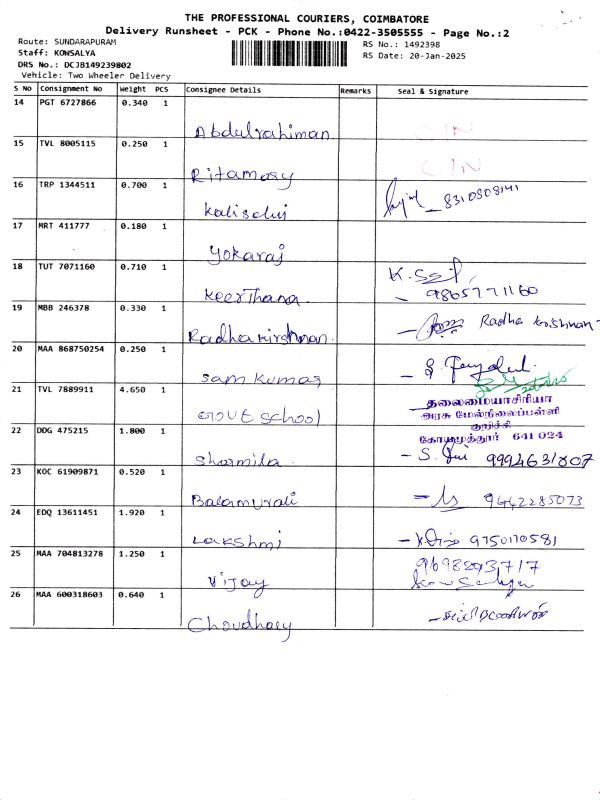 THE PROFESSIONAL COURIERS, COIMBATORE
Delivery Runsheet - PCK - Phone No.:0422-3505555 - Page No.:2
Route: SUNDARAPURAM
RS No.: 1492398
Staff: KOWSALYA
RS Date: 20-Jan-2025
DRS No.: DCJB149239802
Vehicle: Two Wheeler Delivery
S No Consignment No Weight PCS Consignee Details Remarks Seal & Signature
14 PGT 6727866 0.340 1
Abdulrahiman CIN
15 TVL 8005115 0.250 1
Ritamosy CIN
16 TRP 1344511 0.700 1
Kaliselvi 8310808141
17 MRT 411777 0.180 1
Yokaraj
18 TUT 7071160 0.710 1
Keerthana 9865771160
19 MBB 246378 0.330 1
Radhakirshnan Radha krishnan
20 MAA 868750254 0.250 1
Sam Kumar
21 TVL 7889911 4.650 1
Govt School
தலைமையாசிரியா
அரசு மேல்நிலைப்பள்ளி
குறிச்சி
கோயமுத்தூர் 641 024
22 DDG 475215 1.800 1
Sharmila 9994631807
23 KOC 61909871 0.520 1
Balamurali 9442285073
24 EDQ 13611451 1.920 1
Lakshmi 9750170581
25 MAA 704813278 1.250 1
Vijay 9698293717
26 MAA 600318603 0.640 1
Choudhary